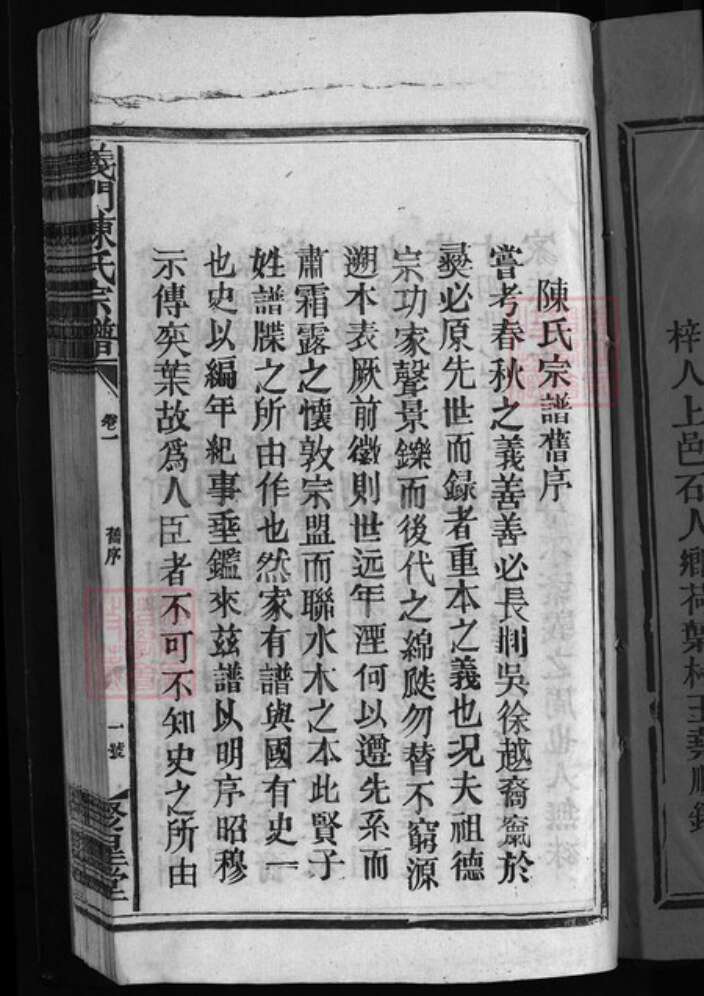 梓人上邑石人鄉荷葉村王堯順鐫
陳氏宗譜舊序
嘗考春秋之義善善必長荆吳徐越裔窳於
彛必原先世而録者重本之義也况夫祖德
宗功家聲景鑠而後代之綿瓞勿替不窮源
遡本表厥前徽則世远年湮何以遵先系而
肅霜露之懷敦宗盟而聯水木之本此賢子
姓譜牒之所由作也然家有譜與國有史一
也史以編年紀事垂鑑來兹譜以明序昭穆
示傳奕葉故為人臣者不可不知史之所由
義門陳氏宗譜
卷一
舊序
一號
聚星堂